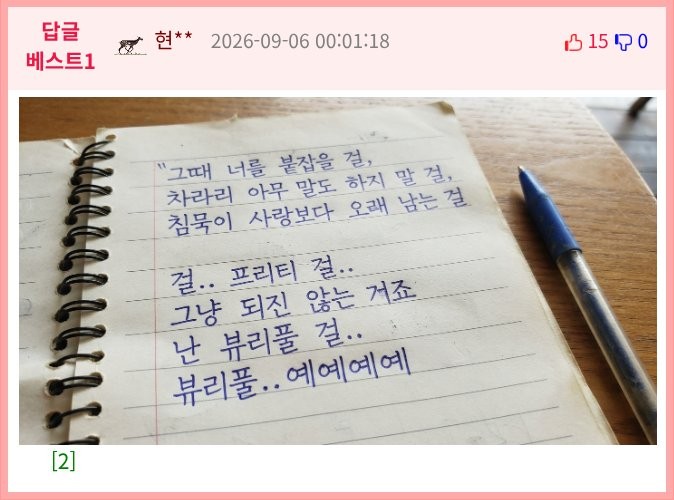 답글
베스트1
현** 2026-09-06 00:01:18 15 0
"그때 너를 붙잡을 걸,
차라리 아무 말도 하지 말 걸,
침묵이 사랑보다 오래 남는 걸
걸.. 프리티 걸..
그냥 되진 않는 거죠
난 뷰리풀 걸..
뷰리풀..예예예예
[2]